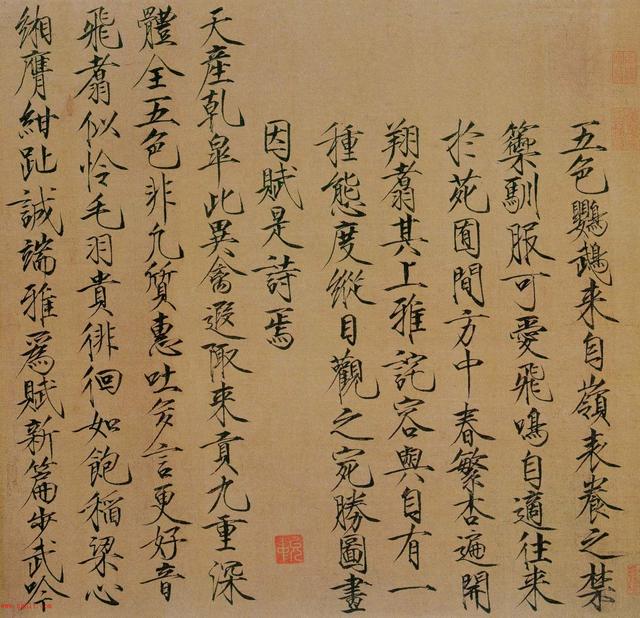 五色鸚鵡来自嶺表養之禁
籞馴服可愛飛鳴自適往来
於苑囿間方中春繁杏遍開
翔翥其上雅詫容與自有一
種態度縱目觀之宛勝圖畫
因賦是詩焉
天産乾皐此異禽遐陬来貢九重深
體全五色非凡質惠吐多言更好音
飛翥似怜毛羽貴徘徊如飽稲粱心
緗膺紺趾誠端雅爲賦新篇步武吟